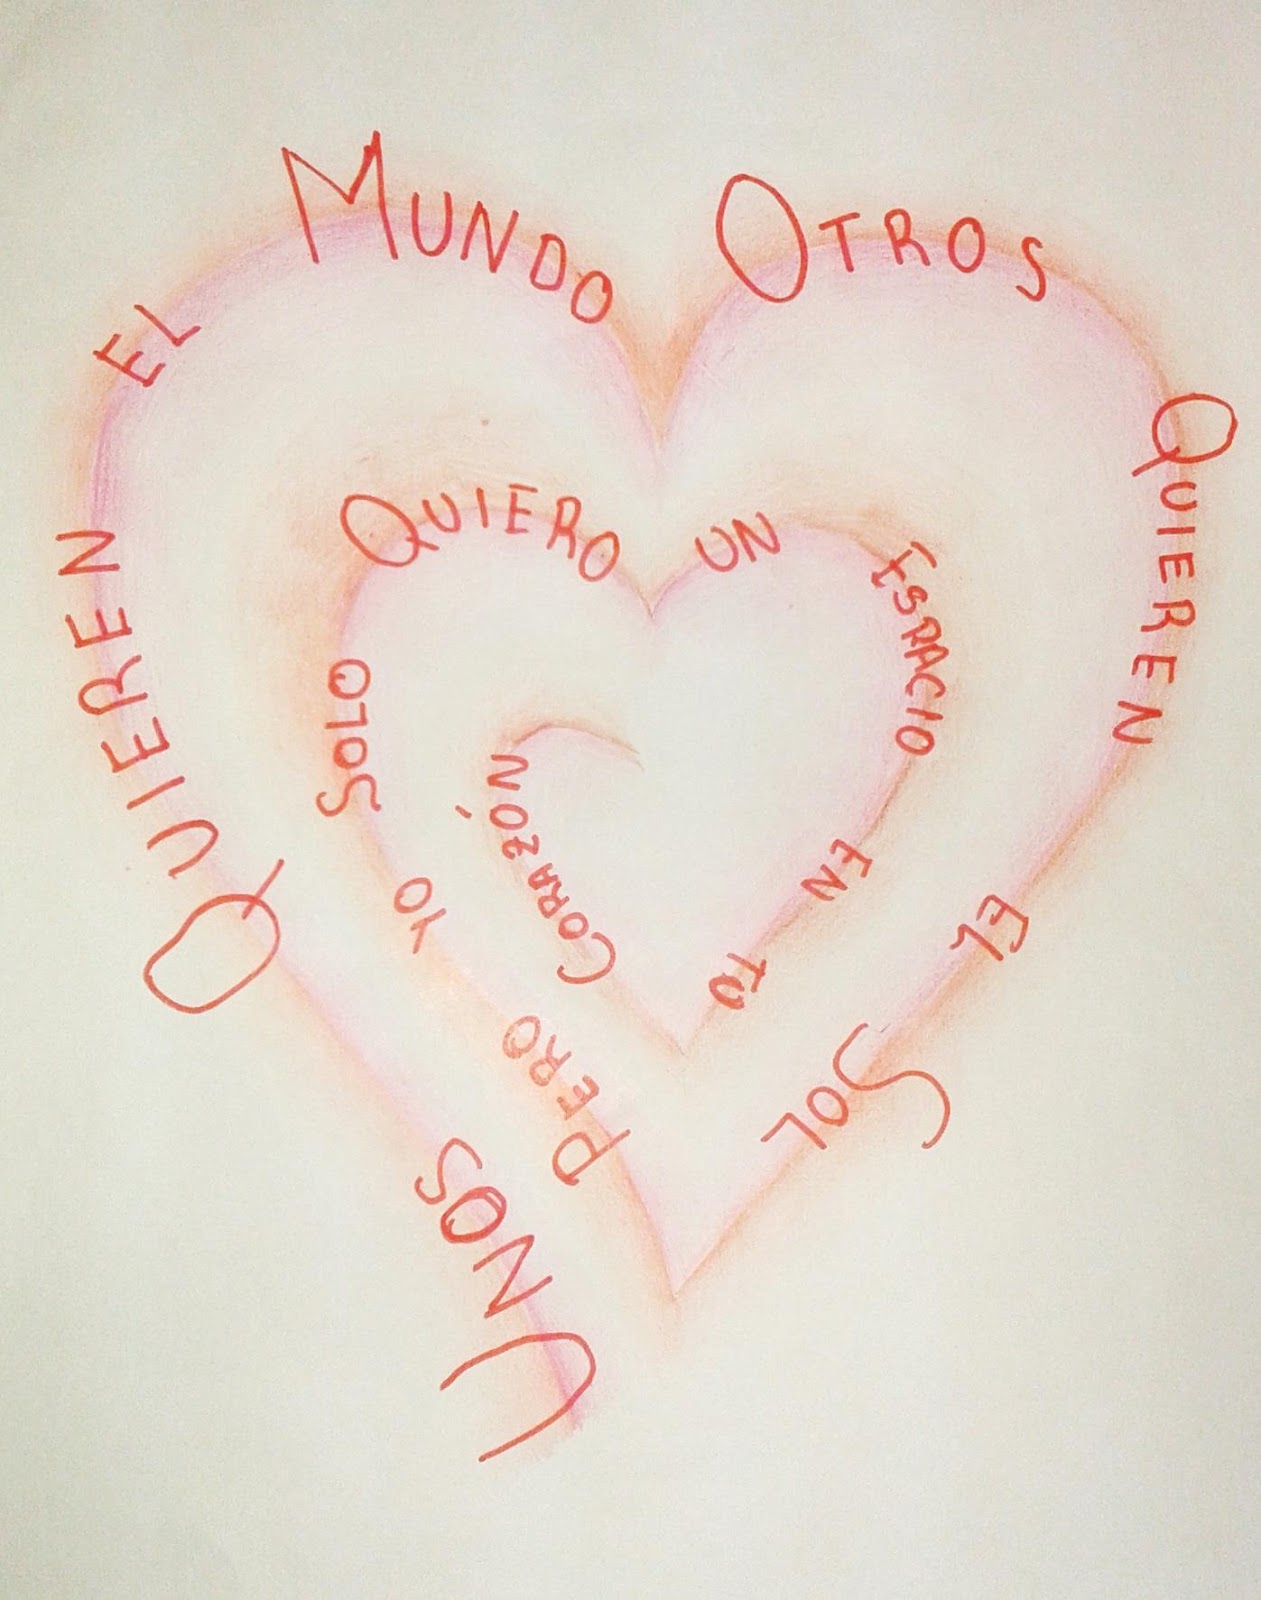 UNOS QUIEREN EL MUNDO OTROS QUIEREN EL SOL PERO YO SOLO QUIERO UN ESPACIO EN TU CORAZÓN